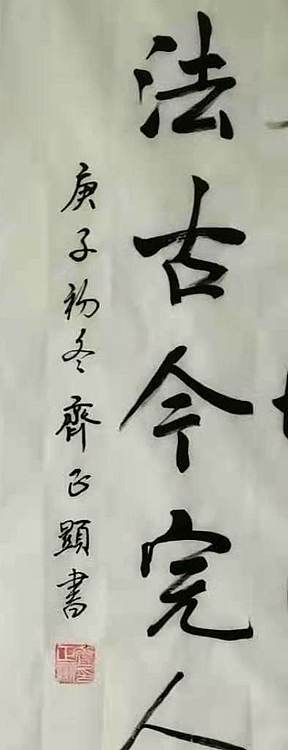 法古今完人
庚子初冬齊正顯書